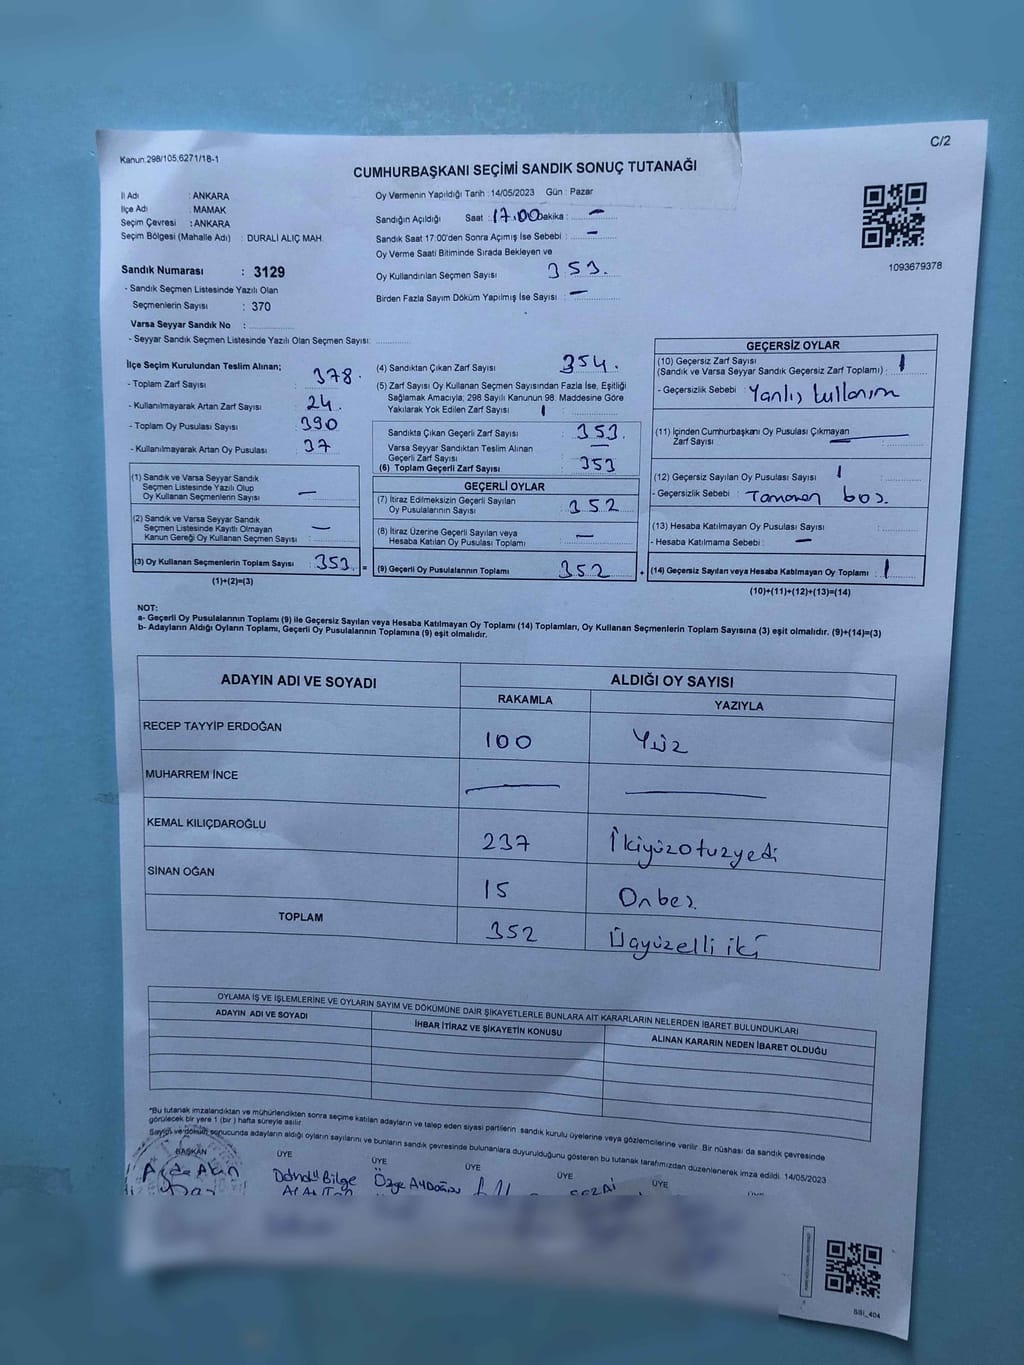 C/2
Kanun.298/105.6271/18-1
CUMHURBAŞKANI SEÇİMİ SANDIK SONUÇ TUTANAĞI
İl Adı : ANKARA
İlçe Adı : MAMAK
Seçim Çevresi : ANKARA
Seçim Bölgesi (Mahalle Adı) : DURALİ ALIÇ MAH.
Sandık Numarası : 3129
- Sandık Seçmen Listesinde Yazılı Olan
Seçmenlerin Sayısı : 370
Varsa Seyyar Sandık No :
- Seyyar Sandık Seçmen Listesinde Yazılı Olan Seçmen Sayısı:
Oy Vermenin Yapıldığı Tarih : 14/05/2023 Gün : Pazar
Sandığın Açıldığı Saat : 17.00 Dakika : —
Sandık Saat 17:00'den Sonra Açımış İse Sebebi : —
Oy Verme Saati Bitiminde Sırada Bekleyen ve
Oy Kullandırılan Seçmen Sayısı 353.
Birden Fazla Sayım Döküm Yapılmış İse Sayısı : —
1093679378
İlçe Seçim Kurulundan Teslim Alınan;
- Toplam Zarf Sayısı : 378.
- Kullanılmayarak Artan Zarf Sayısı : 24.
- Toplam Oy Pusulası Sayısı : 390
- Kullanılmayarak Artan Oy Pusulası : 37
(1) Sandık ve Varsa Seyyar Sandık
Seçmen Listesinde Yazılı Olup
Oy Kullanan Seçmenlerin Sayısı : —
(2) Sandık ve Varsa Seyyar Sandık
Seçmen Listesinde Kayıtlı Olmayan
Kanun Gereği Oy Kullanan Seçmen Sayısı : —
(3) Oy Kullanan Seçmenlerin Toplam Sayısı : 353. =
(1)+(2)=(3)
(4) Sandıktan Çıkan Zarf Sayısı : 354.
(5) Zarf Sayısı Oy Kullanan Seçmen Sayısından Fazla İse, Eşitliği
Sağlamak Amacıyla; 298 Sayılı Kanunun 98. Maddesine Göre
Yakılarak Yok Edilen Zarf Sayısı : 1
Sandıkta Çıkan Geçerli Zarf Sayısı : 353.
Varsa Seyyar Sandıktan Teslim Alınan
Geçerli Zarf Sayısı : —
(6) Toplam Geçerli Zarf Sayısı : 353
GEÇERLİ OYLAR
(7) İtiraz Edilmeksizin Geçerli Sayılan
Oy Pusulalarının Sayısı : 352
(8) İtiraz Üzerine Geçerli Sayılan veya
Hesaba Katılan Oy Pusulası Toplamı : —
(9) Geçerli Oy Pusulalarının Toplamı : 352 +
GEÇERSİZ OYLAR
(10) Geçersiz Zarf Sayısı
(Sandık ve Varsa Seyyar Sandık Geçersiz Zarf Toplamı) : 1
- Geçersizlik Sebebi : Yanlış kullanım
(11) İçinden Cumhurbaşkanı Oy Pusulası Çıkmayan
Zarf Sayısı : —
(12) Geçersiz Sayılan Oy Pusulası Sayısı : 1
- Geçersizlik Sebebi : Tamamen boş.
(13) Hesaba Katılmayan Oy Pusulası Sayısı :
- Hesaba Katılmama Sebebi : —
(14) Geçersiz Sayılan veya Hesaba Katılmayan Oy Toplamı : 1
(10)+(11)+(12)+(13)=(14)
NOT:
a- Geçerli Oy Pusulalarının Toplamı (9) ile Geçersiz Sayılan veya Hesaba Katılmayan Oy Toplamı (14) Toplamları, Oy Kullanan Seçmenlerin Toplam Sayısına (3) eşit olmalıdır. (9)+(14)=(3)
b- Adayların Aldığı Oyların Toplamı, Geçerli Oy Pusulalarının Toplamına (9) eşit olmalıdır.
ADAYIN ADI VE SOYADI ALDIĞI OY SAYISI
RAKAMLA YAZIYLA
RECEP TAYYİP ERDOĞAN 100 Yüz
MUHARREM İNCE — —
KEMAL KILIÇDAROĞLU 237 İkiyüzotuzyedi
SİNAN OĞAN 15 Onbeş.
TOPLAM 352 Üçyüzelli iki
OYLAMA İŞ VE İŞLEMLERİNE VE OYLARIN SAYIM VE DÖKÜMÜNE DAİR ŞİKAYETLERLE BUNLARA AİT KARARLARIN NELERDEN İBARET BULUNDUKLARI
ADAYIN ADI VE SOYADI İHBAR İTİRAZ VE ŞİKAYETİN KONUSU ALINAN KARARIN NEDEN İBARET OLDUĞU
*Bu tutanak imzalandıktan ve mühürlendikten sonra seçime katılan adayların ve talep eden siyasi partilerin sandık kurulu üyelerine veya gözlemcilerine verilir. Bir nüshası da sandık çevresinde
görülecek bir yere 1 (bir) hafta süreyle asılır.
Sayım ve döküm sonucunda adayların aldığı oyların sayılarını ve bunların sandık çevresinde bulunanlara duyurulduğunu gösteren bu tutanak tarafımızdan düzenlenerek imza edildi. 14/05/2023
BAŞKAN ÜYE ÜYE ÜYE ÜYE ÜYE ÜYE
Bilge Özge AYDOĞAN SEZAİ
SSI_404